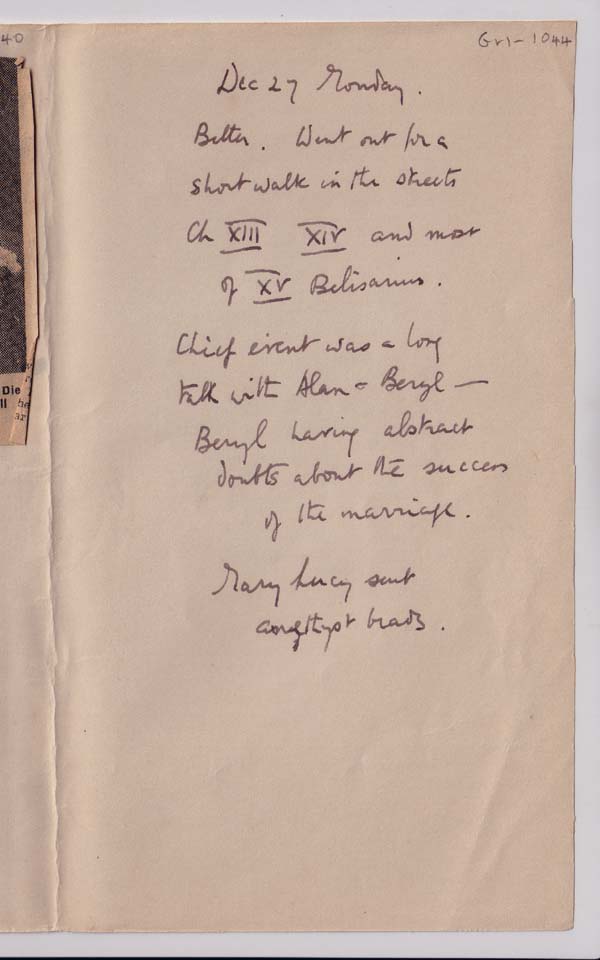 40
Gr1-1044
Dec 27 Monday.
Better. Went out for a
short walk in the streets
Ch XIII XIV and most
of XV Belisarius.
Chief event was a long
talk with Alan & Beryl —
Beryl having abstract
doubts about the success
of the marriage.
Mary Lucy sent
amethyst beads.
Die
ll he
ar